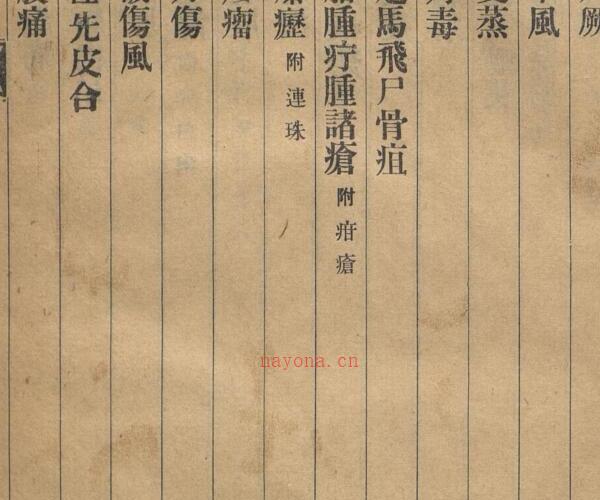 厥
風
蒸
毒
馬飛尸骨疽
腫疔腫諸瘡 附疳瘡
癧 附連珠
瘤
傷
傷風
先皮合
痛
nayona.cn